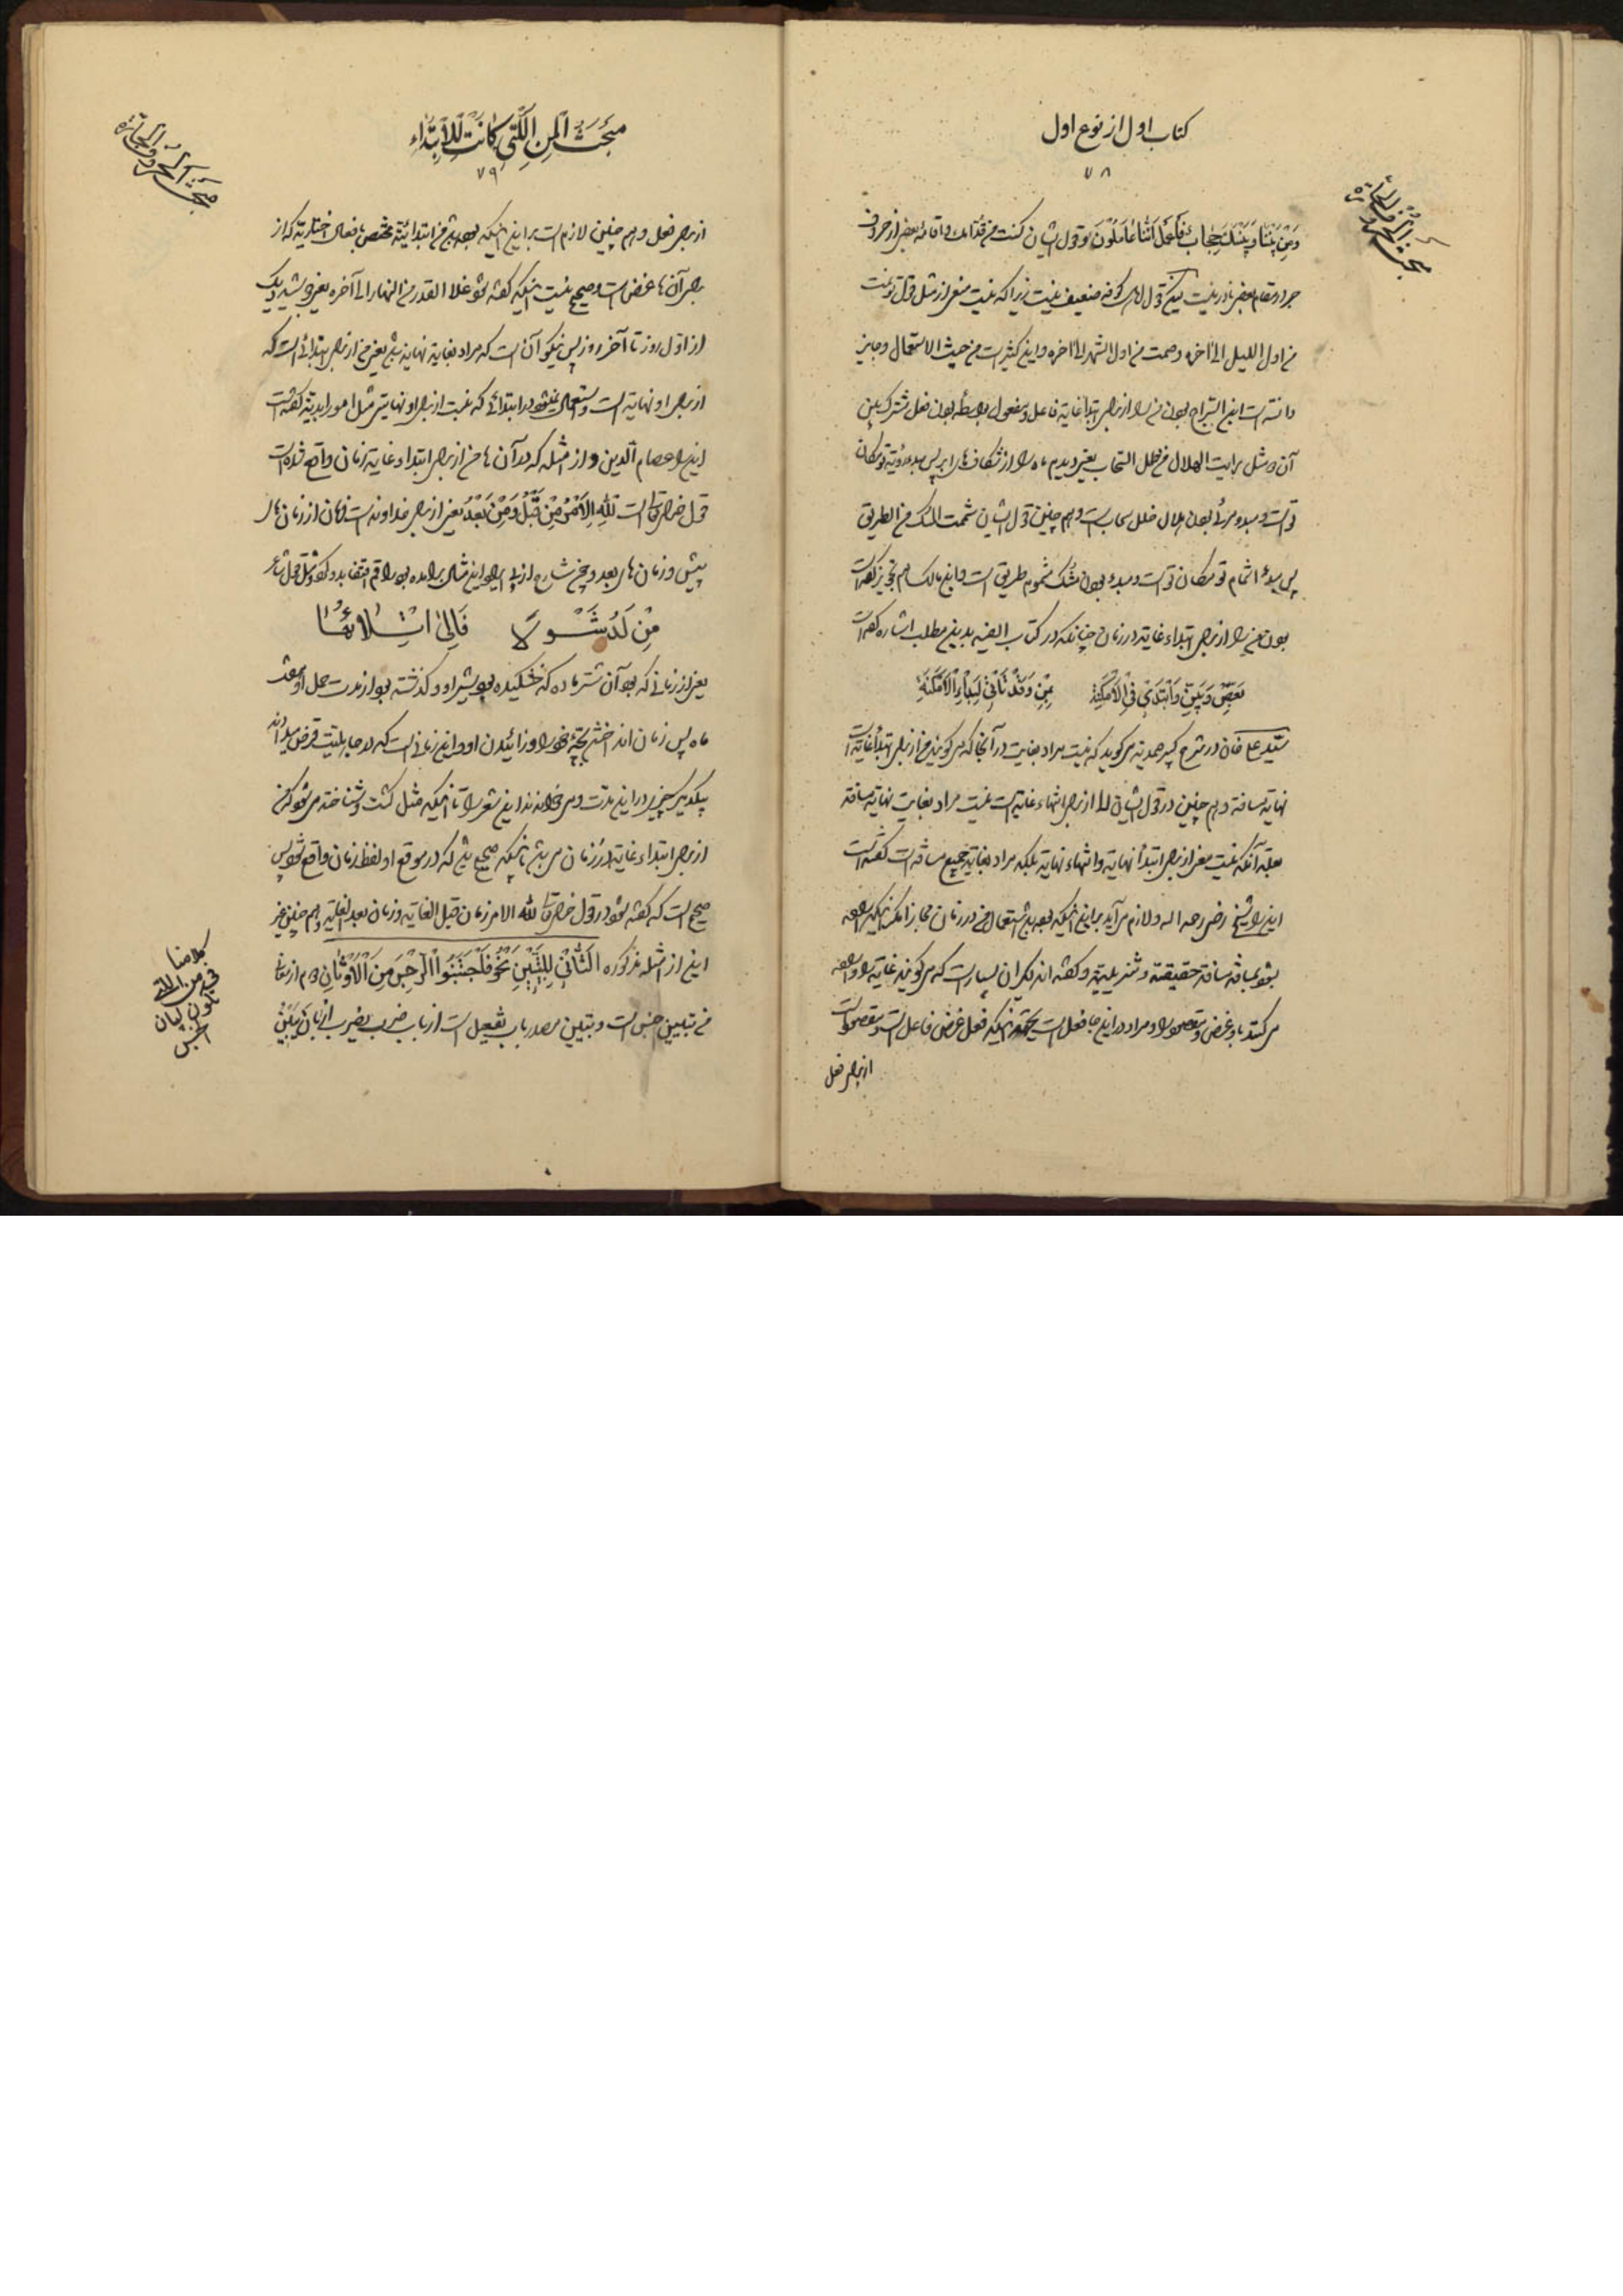 کتاب اول از نوع اول
۷۸
وَمِنْ بَیْنِنَا وَبَیْنِکَ حِجَابٌ فَاعْمَلْ اِنَّنَا عَامِلُونَ و قول ایشان کنت من قدامک و اقامه بعضی از حروف
جر در مقام بعضی نادر نیست لیکن قول اهل کوفه ضعیف نیست زیرا که نیست منعی از مثل قول تو نمت
من اول اللیل الی اخره و صمت من اول الشهر الی اخره و این کثیر است من حیث الاستعمال و جایز
دانسته است ابن السراج بودن من را از برای ابتداء غایة فاعل و مفعول بواسطه بودن فعل مشترک بین
آن دو مثل رایت الهلال من خلل السحاب یعنی دیدم ماه را از شکاف های ابر پس مبدء رؤیة تو مکان
تو است و مبدء مرئی بودن هلال خلل سحاب است و هم چنین قول ایشان شممت المسک من الطریق
پس مبدء اشمام تو مکان تو است و مبدء بودن مشک مشموم طریق است و ابن مالک هم تجویز کرده است
بودن من را از برای ابتداء غایة در زمان چنانکه در کتاب الفیه بدین مطلب اشاره کرده است
بَعِّضْ وَبَیِّنْ وَابْتَدِئْ فِی الْاَمْکِنَة مِنْ وَقَدْ تَأْتِی لِبَدْءِ الْاَزْمِنَةِ
سید علی خان در شرح کبیر صمدیه می گوید که نیست مراد بغایت در آنجا که می گویند من از برای ابتداء غایة است
نهایة مسافة و هم چنین در قول ایشان الی از برای انتهاء غایة است نیست مراد بغایت نهایة مسافة
بعلة آنکه نیست معنی از برای ابتداء نهایة و انتهاء نهایة بلکه مراد بغایة جمیع مسافة است گفته است
این را شیخ رضی رحمه اله و لازم می آید بر این اینکه بوده باشد استعمال من در زمان مجاز
بشود بمسافة مسافة حقیقة و تنزیلیة و گفته اند که آن بسیار است که می گویند غایة را و اراده
می کنند باو غرض و مقصود را و مراد در این جا فعل است بجهة اینکه فعل غرض فاعل است و مقصود است
از برای فعل
مَبْحَثُ الْمِنِ الَّتِی کَانَتْ لِلْاِبْتِدَاءِ
۷۹
مبحث الحروف الجارة
از برای فعل و هم چنین لازم است بر این اینکه بوده باشد من ابتدائیة مختص بافعال اختیاریة که از
برای آن ها غرض است و صحیح نیست اینکه گفته شود غلا القدر من النهار الی آخره یعنی جوشید دیک
از اول روز تا آخر روز پس نیکو آن است که مراد بغایة نهایة باشد یعنی من از برای ابتدائی است که
از برای او نهایة است و استعمال نمیشود در ابتدائی که نیست از برای او نهایتی مثل امور ابدیة گفته است
این را عصام الدین و از امثله که در آن ها من از برای ابتداء غایة زمان واقع شده است
قول خدای تعالی است لِلّٰهِ الْاَمْرُ مِنْ قَبْلُ وَمِنْ بَعْدُ یعنی از برای خداوند است فرمان از زمان های
پیش و زمان های بعد
مِنْ لَدُ شَوْلًا فَاِلٰی اِتْلَائِهَا
یعنی از زمانی که بود آن شتر ماده که خشکیده بود شیر او و گذشته بود از مدت حمل او هفت
ماه پس زمان انداختن بچه خود را و زائیدن او
از برای ابتداء غایة در زمان می باشد باینکه صحیح باشد که در موقع او لفظ زمان واقع شود پس
صحیح است که گفته شود در قول خدای تعالی لله الامر زمان قبل الغایة و زمان بعد الغایة و هم چنین غیر
این از امثله مذکوره اَلثَّانِیْ لِلتَّبْیِینِ نَحْوُ فَاجْتَنِبُوا الرِّجْسَ مِنَ الْاَوْثَانِ دوم از معانی
من تبیین جنس است و تبیین مصدر باب تفعیل است از باب ضرب یضرب از بَانَ یَبِینُ
کلامنا
فی من اللتی
تکون لبیان
الجنس